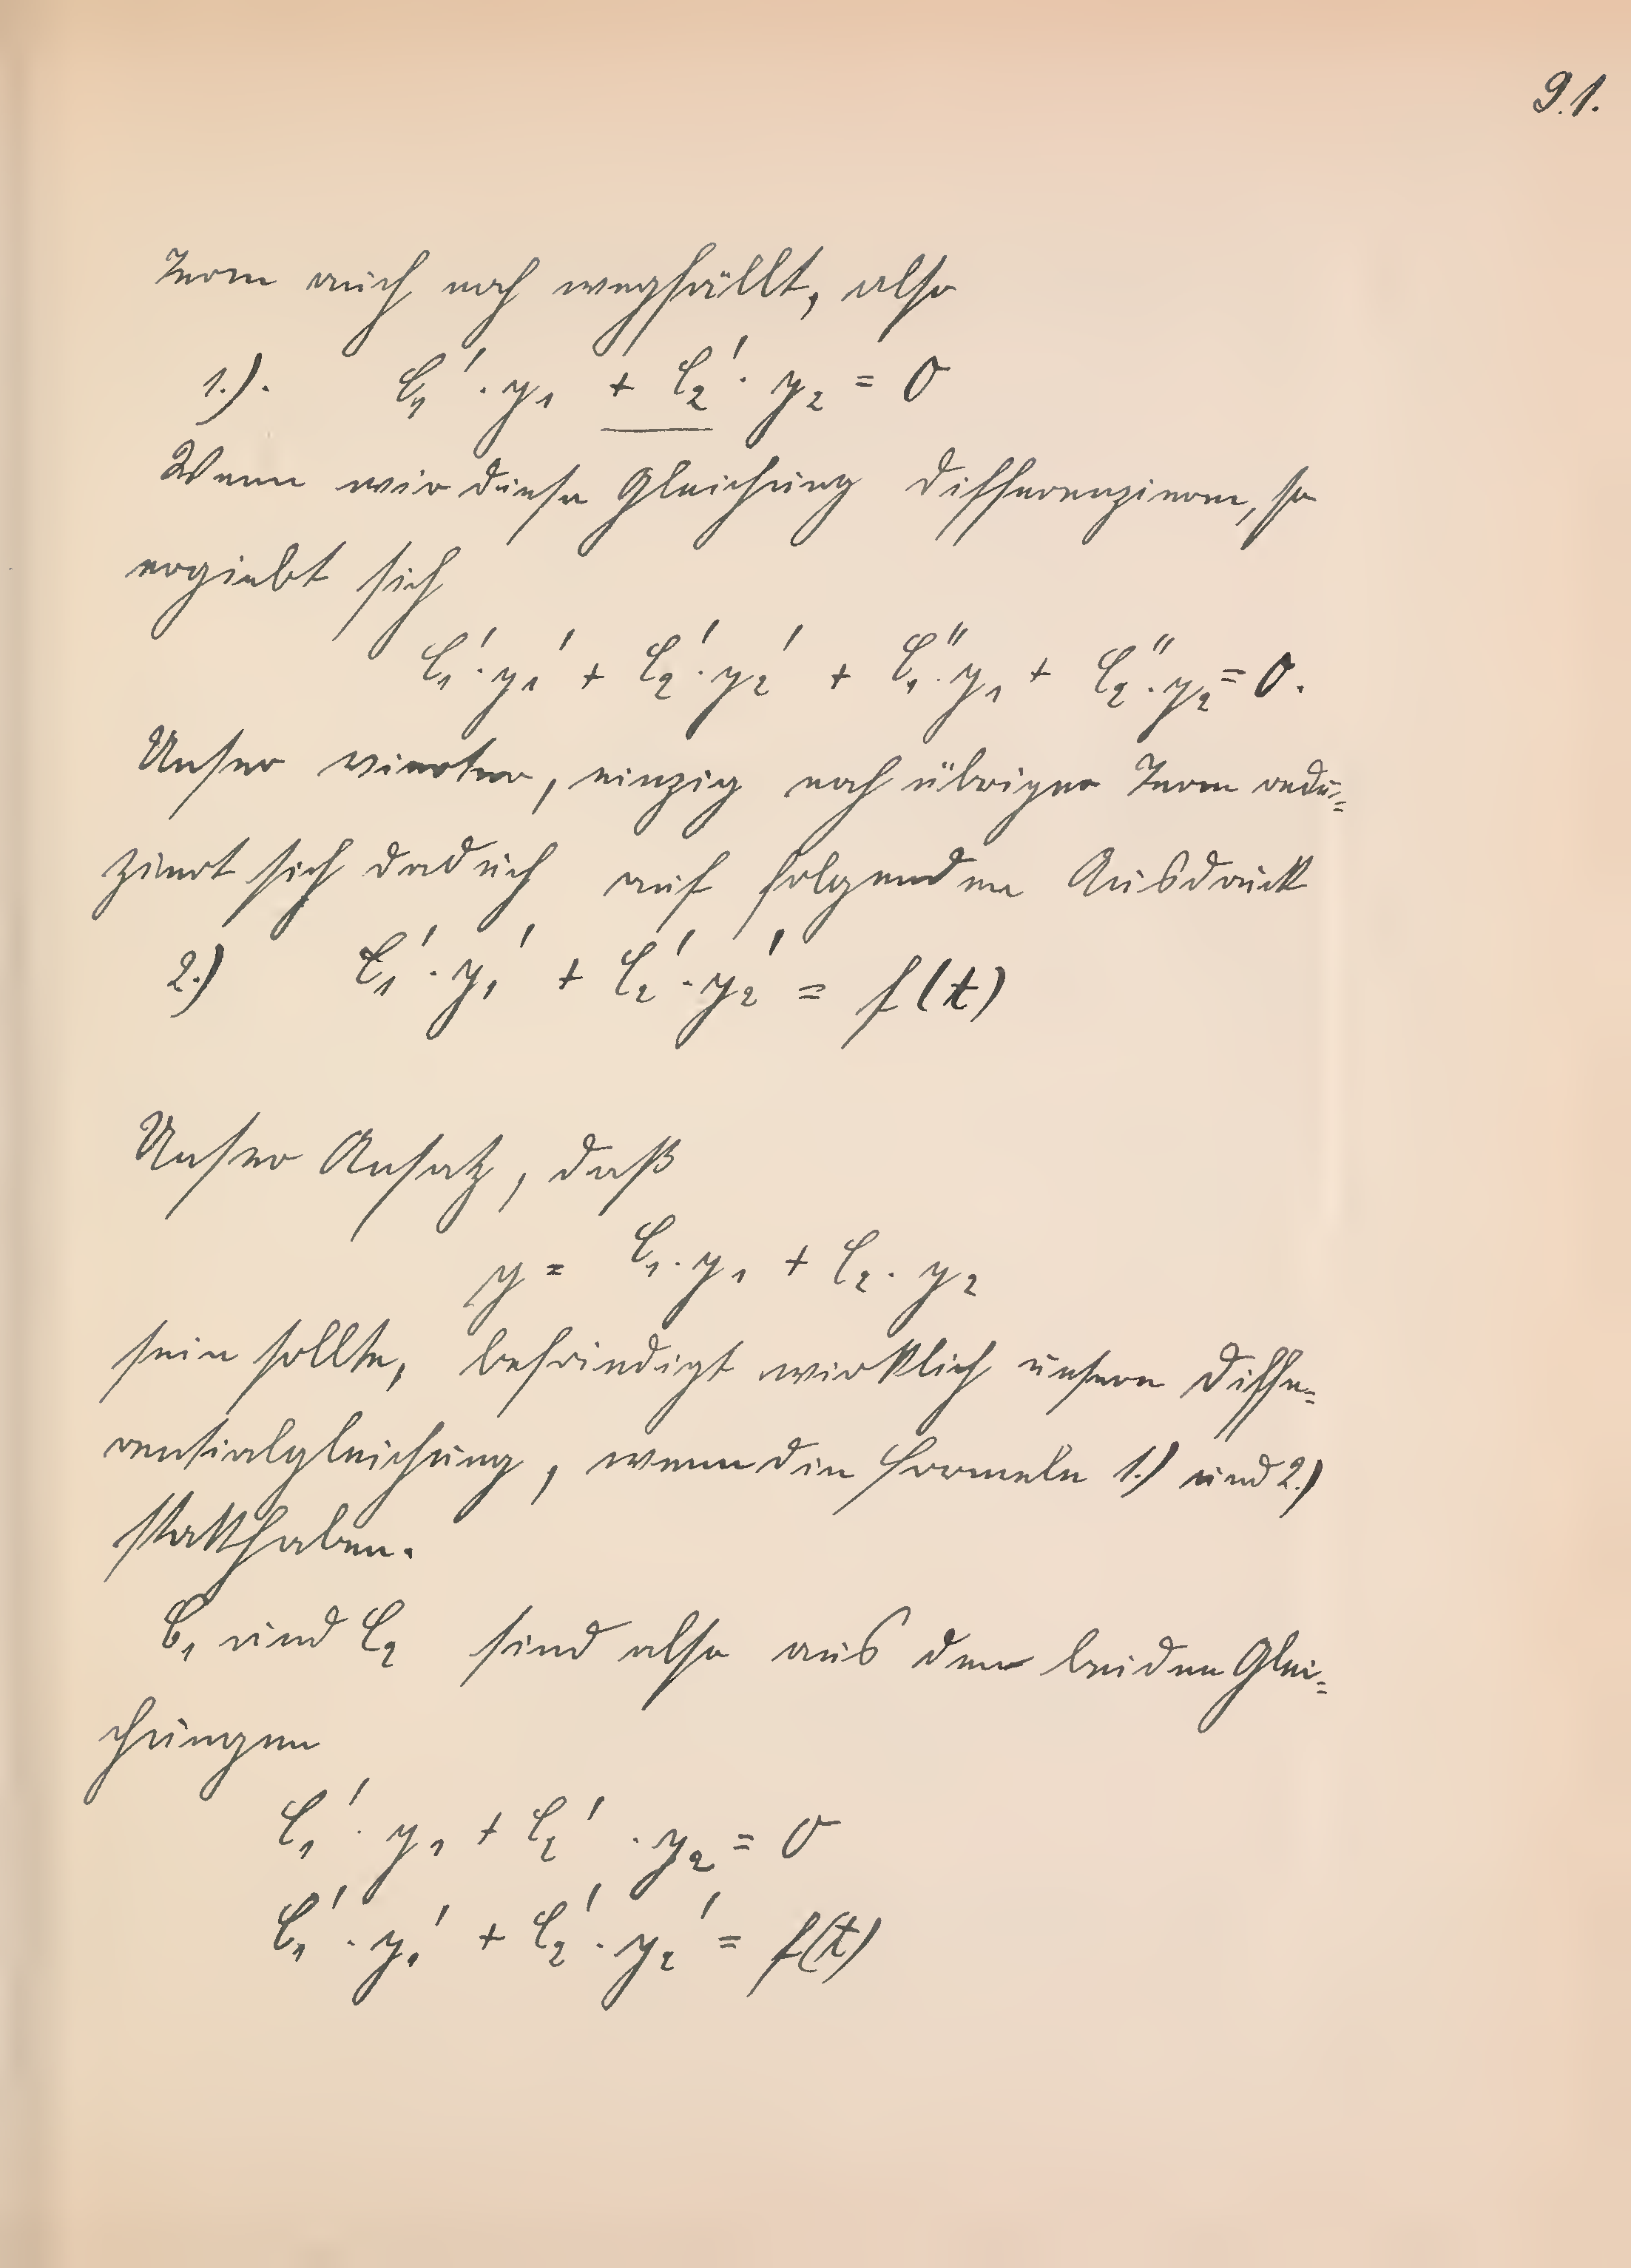 91.
Term auch noch wegfällt, also
1.). C₁' · y₁ + C₂' · y₂ = 0
Wenn wir diese Gleichung differenzieren, so
ergiebt sich
C₁' · y₁' + C₂' · y₂' + C₁'' · y₁ + C₂'' · y₂ = 0.
Unser vierter, einzig noch übriger Term redu=
ziert sich daduch auf folgenden Ausdruck
2.) C₁' · y₁' + C₂' · y₂' = f(t)
Unser Ansatz, daß
y = C₁ · y₁ + C₂ · y₂
sein sollte, befriedigt wirklich unsere Diffe=
rentialgleichung, wenn die Formeln 1.) und 2.)
statthaben.
C₁ und C₂ sind also aus den beiden Glei=
chungen
C₁' · y₁ + C₂' · y₂ = 0
C₁' · y₁' + C₂' · y₂' = f(t)